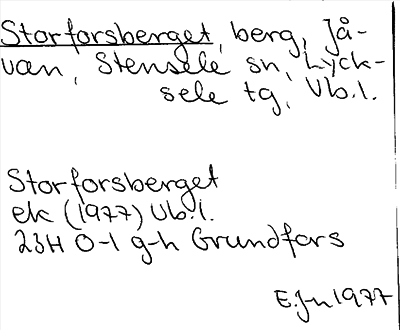 Storforsberget, berg, Jå-
van, Stensele sn, Lyck-
sele tg, Vb.l.
Storforsberget
ek (1977) Vb.l.
23H 0-1 g-h Grundfors
E.J-n 1977